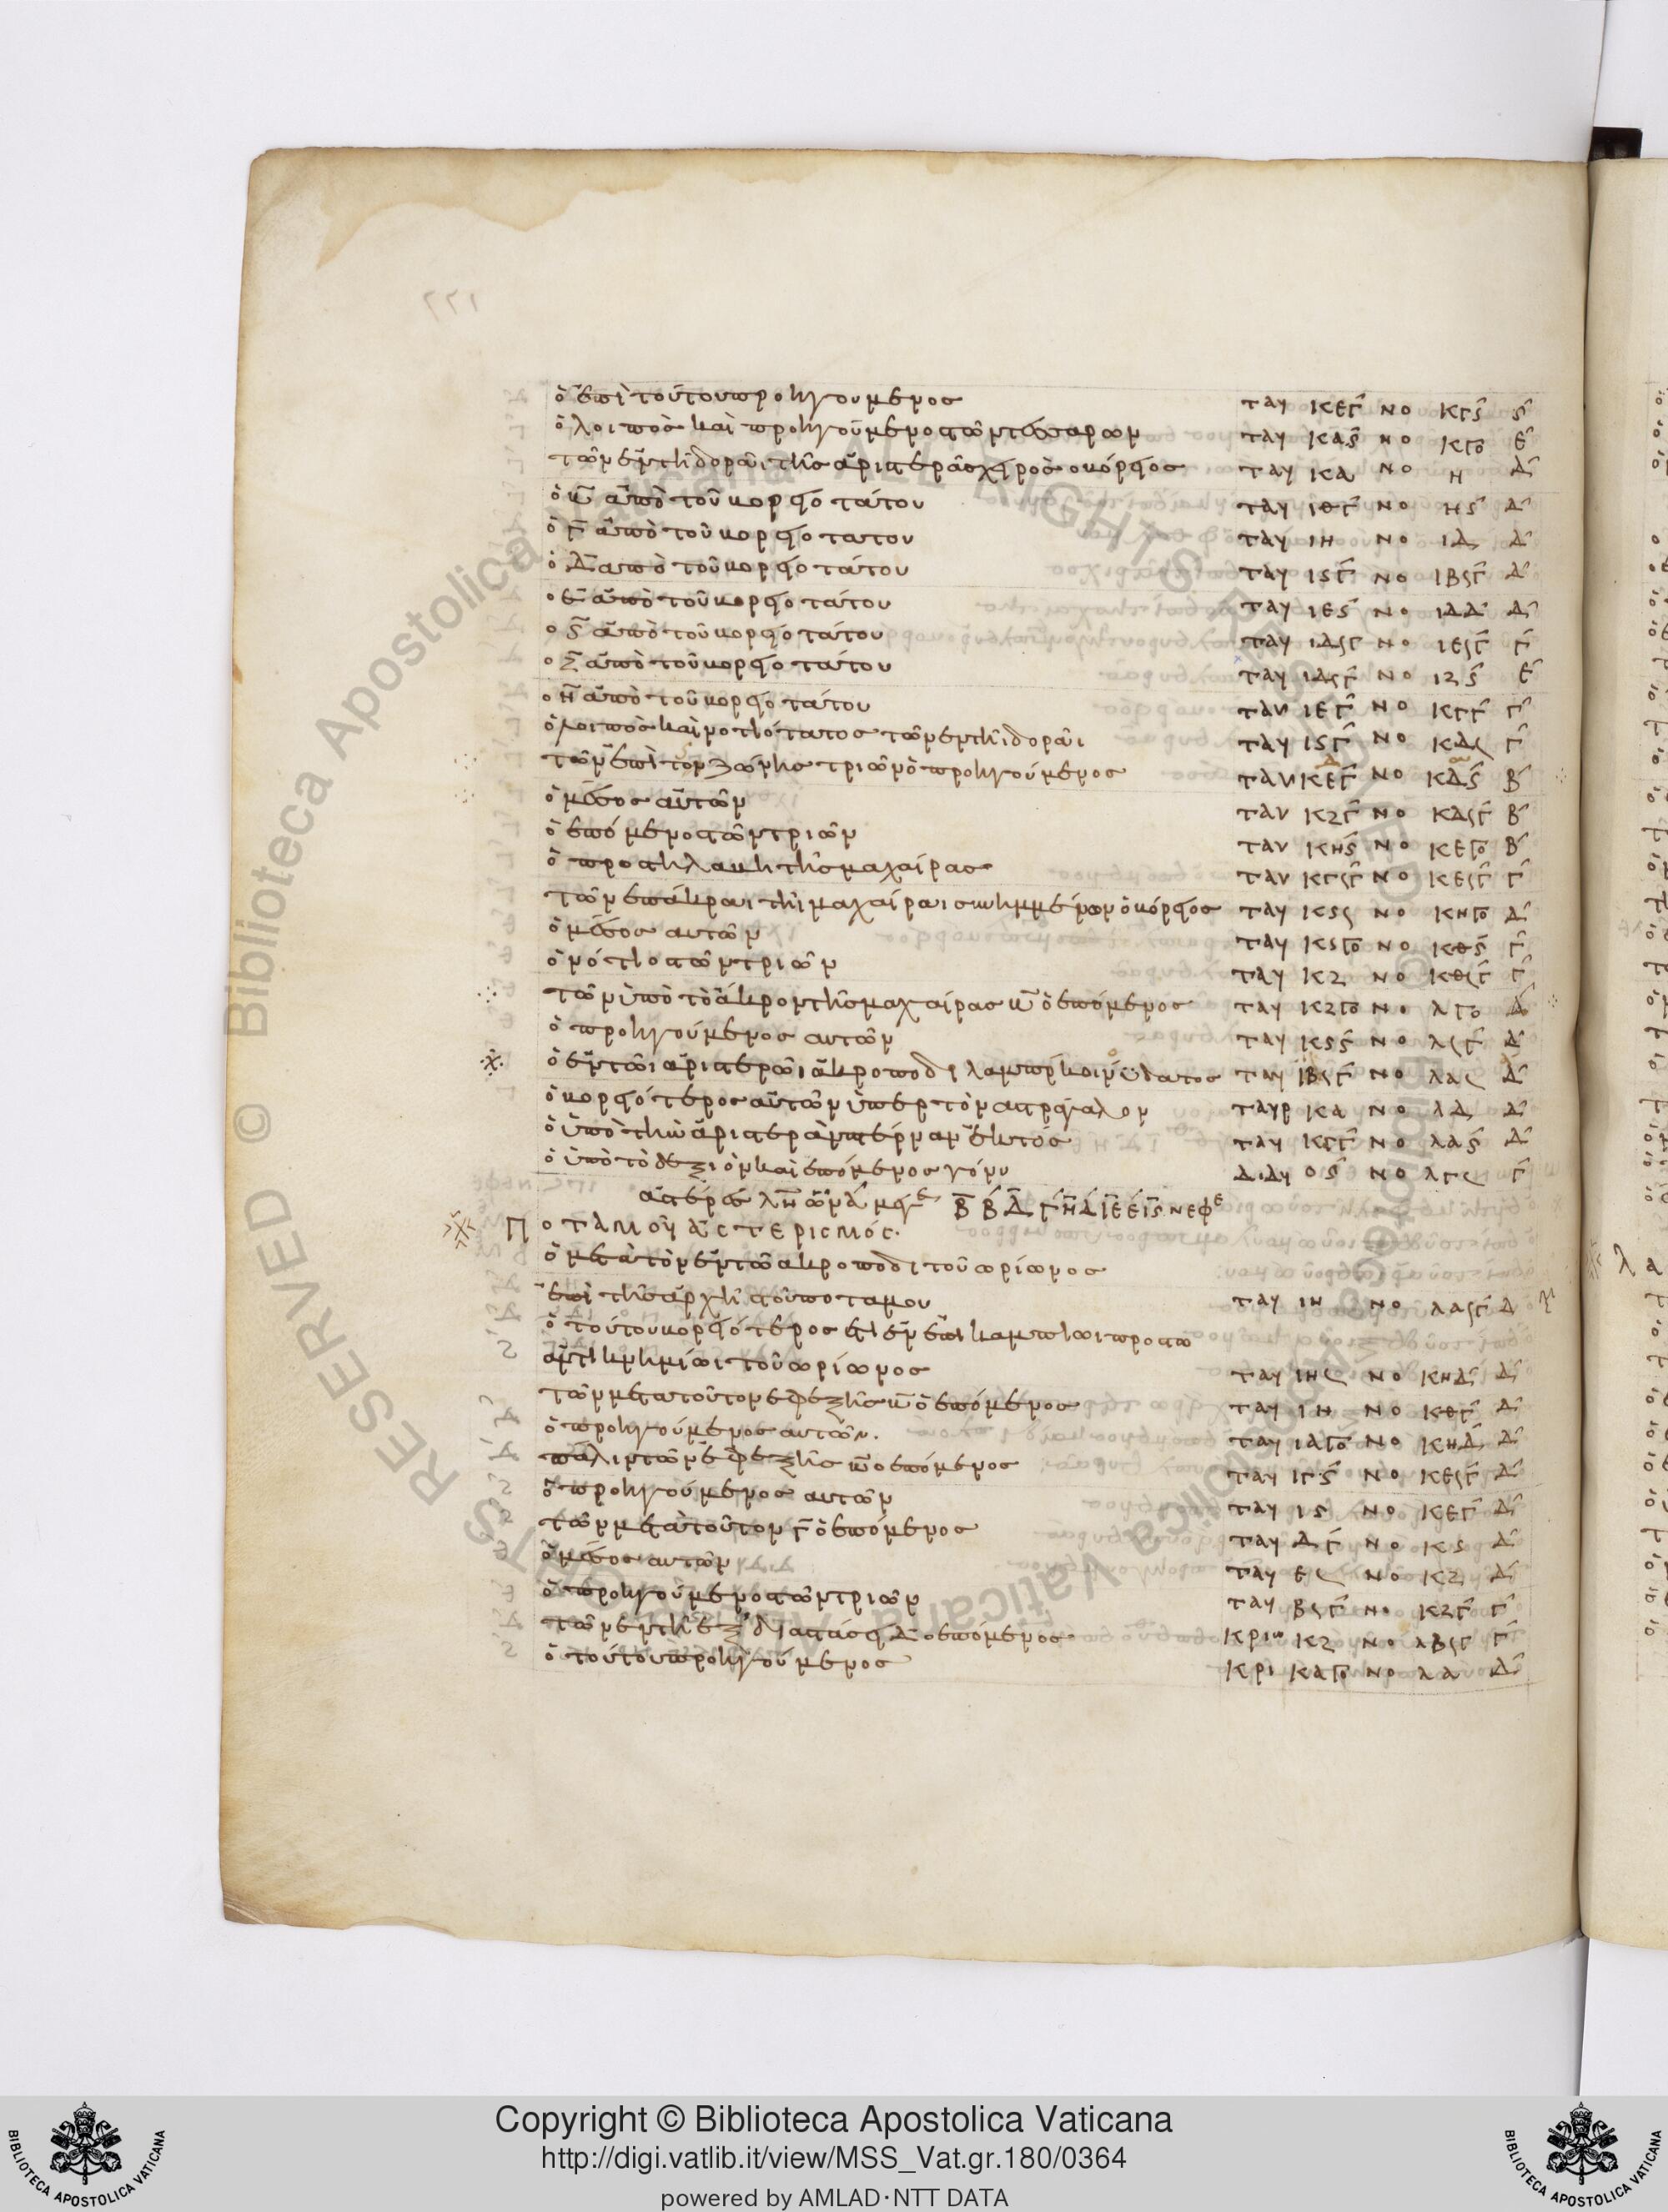 ὁ ἐπὶ τούτου προηγούμενος ταυ κε γ´ νο κγ ς´ ς´
ὁ λοιπὸς καὶ προηγούμενος τῶν τεσσάρων ταυ κα ς´ νο κ γο ε´
τῶν ἐν τῇ δορᾶι τῆς ἀριστερᾶς χειρὸς ὁ βόρειος ταυ κα νο η δ´
ὁ β̄ ἀπὸ τοῦ βορειοτάτου ταυ ιθ γ´ νο η ς´ δ´
ὁ γ̄ ἀπὸ τοῦ βορειοτάτου ταυ ιη νο ι δ δ´
ὁ δ̄ ἀπὸ τοῦ βορειοτάτου ταυ ις γ´ νο ιβ ς γ´ δ´
ὁ ε̄ ἀπὸ τοῦ βορειοτάτου ταυ ιε ς´ νο ιδ δ´ δ´
ὁ ς̄ ἀπὸ τοῦ βορειοτάτου ταυ ιδ ς γ´ νο ιε ς γ´ γ´
ὁ ζ̄ ἀπὸ τοῦ βορειοτάτου ταυ ιδ ς γ´ νο ιζ ς´ ε´
ὁ η̄ ἀπὸ τοῦ βορειοτάτου ταυ ιε γ´ νο κ γ´ γ´
ὁ λοιπὸς καὶ νοτιώτατος τῶν ἐν τῇ δορᾶι ταυ ις γ´ νο κα ς γ´
τῶν ἐπὶ τον ζώνης τριῶν ὁ προηγούμενος ταυ κε γ´ νο κδ ς´ β´
ὁ μέσος αὐτῶν ταυ κζ γ´ νο κδ ς γ´ β´
ὁ ἑπόμενος τῶν τριῶν ταυ κη ς´ νο κε γο β´
ὁ προς τῇ λαβῇ τῆς μαχαίρας ταυ κγ ς γ´ νο κε ς γ´ γ´
τῶν ἐπ ἄκραι τῇ μαχαίραι συνημμένων ὁ βόρειος ταυ κς ς νο κη γο δ´
ὁ μέσος αυτῶν ταυ κς γο νο κθ ς´ γ´
ὁ νότιος τῶν τριῶν ταυ κζ νο κθ ς γ´ γ´
τῶν ὑπὸ τὸ ἄκρον τῆς μαχαίρας β̄ ὁ ἑπόμενος ταυ κζ γο νο λ γο δ´
ὁ προηγούμενος αυτῶν ταυ κς ς´ νο λ ς γ´ δ´
ὁ ἐν τῶι ἀριστερῶι ἀκροποδι λαμπρ κοιν ὕδατος ταυ ιθ ς γ´ νο λα ς δ´
ὁ βορειότερος αὐτῶν ὑπερ τὸν αστράγαλον ταυρ κα νο λ δ δ´
ὁ ὑπὸ τὴν ἀριστερὰν πτέρναν ἐκτός ταυ κγ γ´ νο λα ς´ δ´
ὁ ὑπὸ τὸ δεξιὸν καὶ ἑπόμενος γόνυ διδυ ο ς´ νο λγ ς γ´
Ποταμοῦ ἀστερισμός.
ὁ μετὰ τὸν ἐν τῶ ακροποδι τοῦ ωρίωνος
ἐπὶ τῆς ἀρχῆς τοῦ ποταμου ταυ ιη νο λα ς γ´ δ
ὁ τούτου βορειότερος
ἀντικνημίωι τοῦ ωρίωνος ταυ ιη ς νο κη δ´ δ´
τῶν μετα τοῦτον ἐφεξῆς β̄ ὁ ἑπόμενος ταυ ιη νο κθ γ´ δ´
ὁ προηγούμενος αυτῶν. ταυ ιδ γο νο κη δ´ δ´
πάλιν τῶν ἐφεξῆς β̄ ὁ ἑπόμενος ταυ ιγ ς´ νο κε ς γ´ δ´
ὁ προηγούμενος αυτῶν ταυ ι ς´ νο κε γ´ δ´
τῶν μετὰ τοῦτον γ̄ ὁ ἑπόμενος ταυ δ γ´ νο κς δ´
ὁ μέσος αυτῶν ταυ ε ς νο κζ δ´
ὁ προηγούμενος τῶν τριῶν ταυ β ς γ´ νο κζ γ´ γ´
τῶν ἐν τῇ ἑξ διαστάσει δ̄ ὁ ἑπόμενος κριω κζ νο λβ ς γ´ γ´
ὁ τούτου προηγούμενος κρι κδ γο νο λ α δ´
ALL RIGHTS RESERVED © Biblioteca Apostolica Vaticana
Copyright © Biblioteca Apostolica Vaticana
http://digi.vatlib.it/view/MSS_Vat.gr.180/0364
powered by AMLAD·NTT DATA
BIBLIOTECA APOSTOLICA VATICANA
BIBLIOTECA APOSTOLICA VATICANA